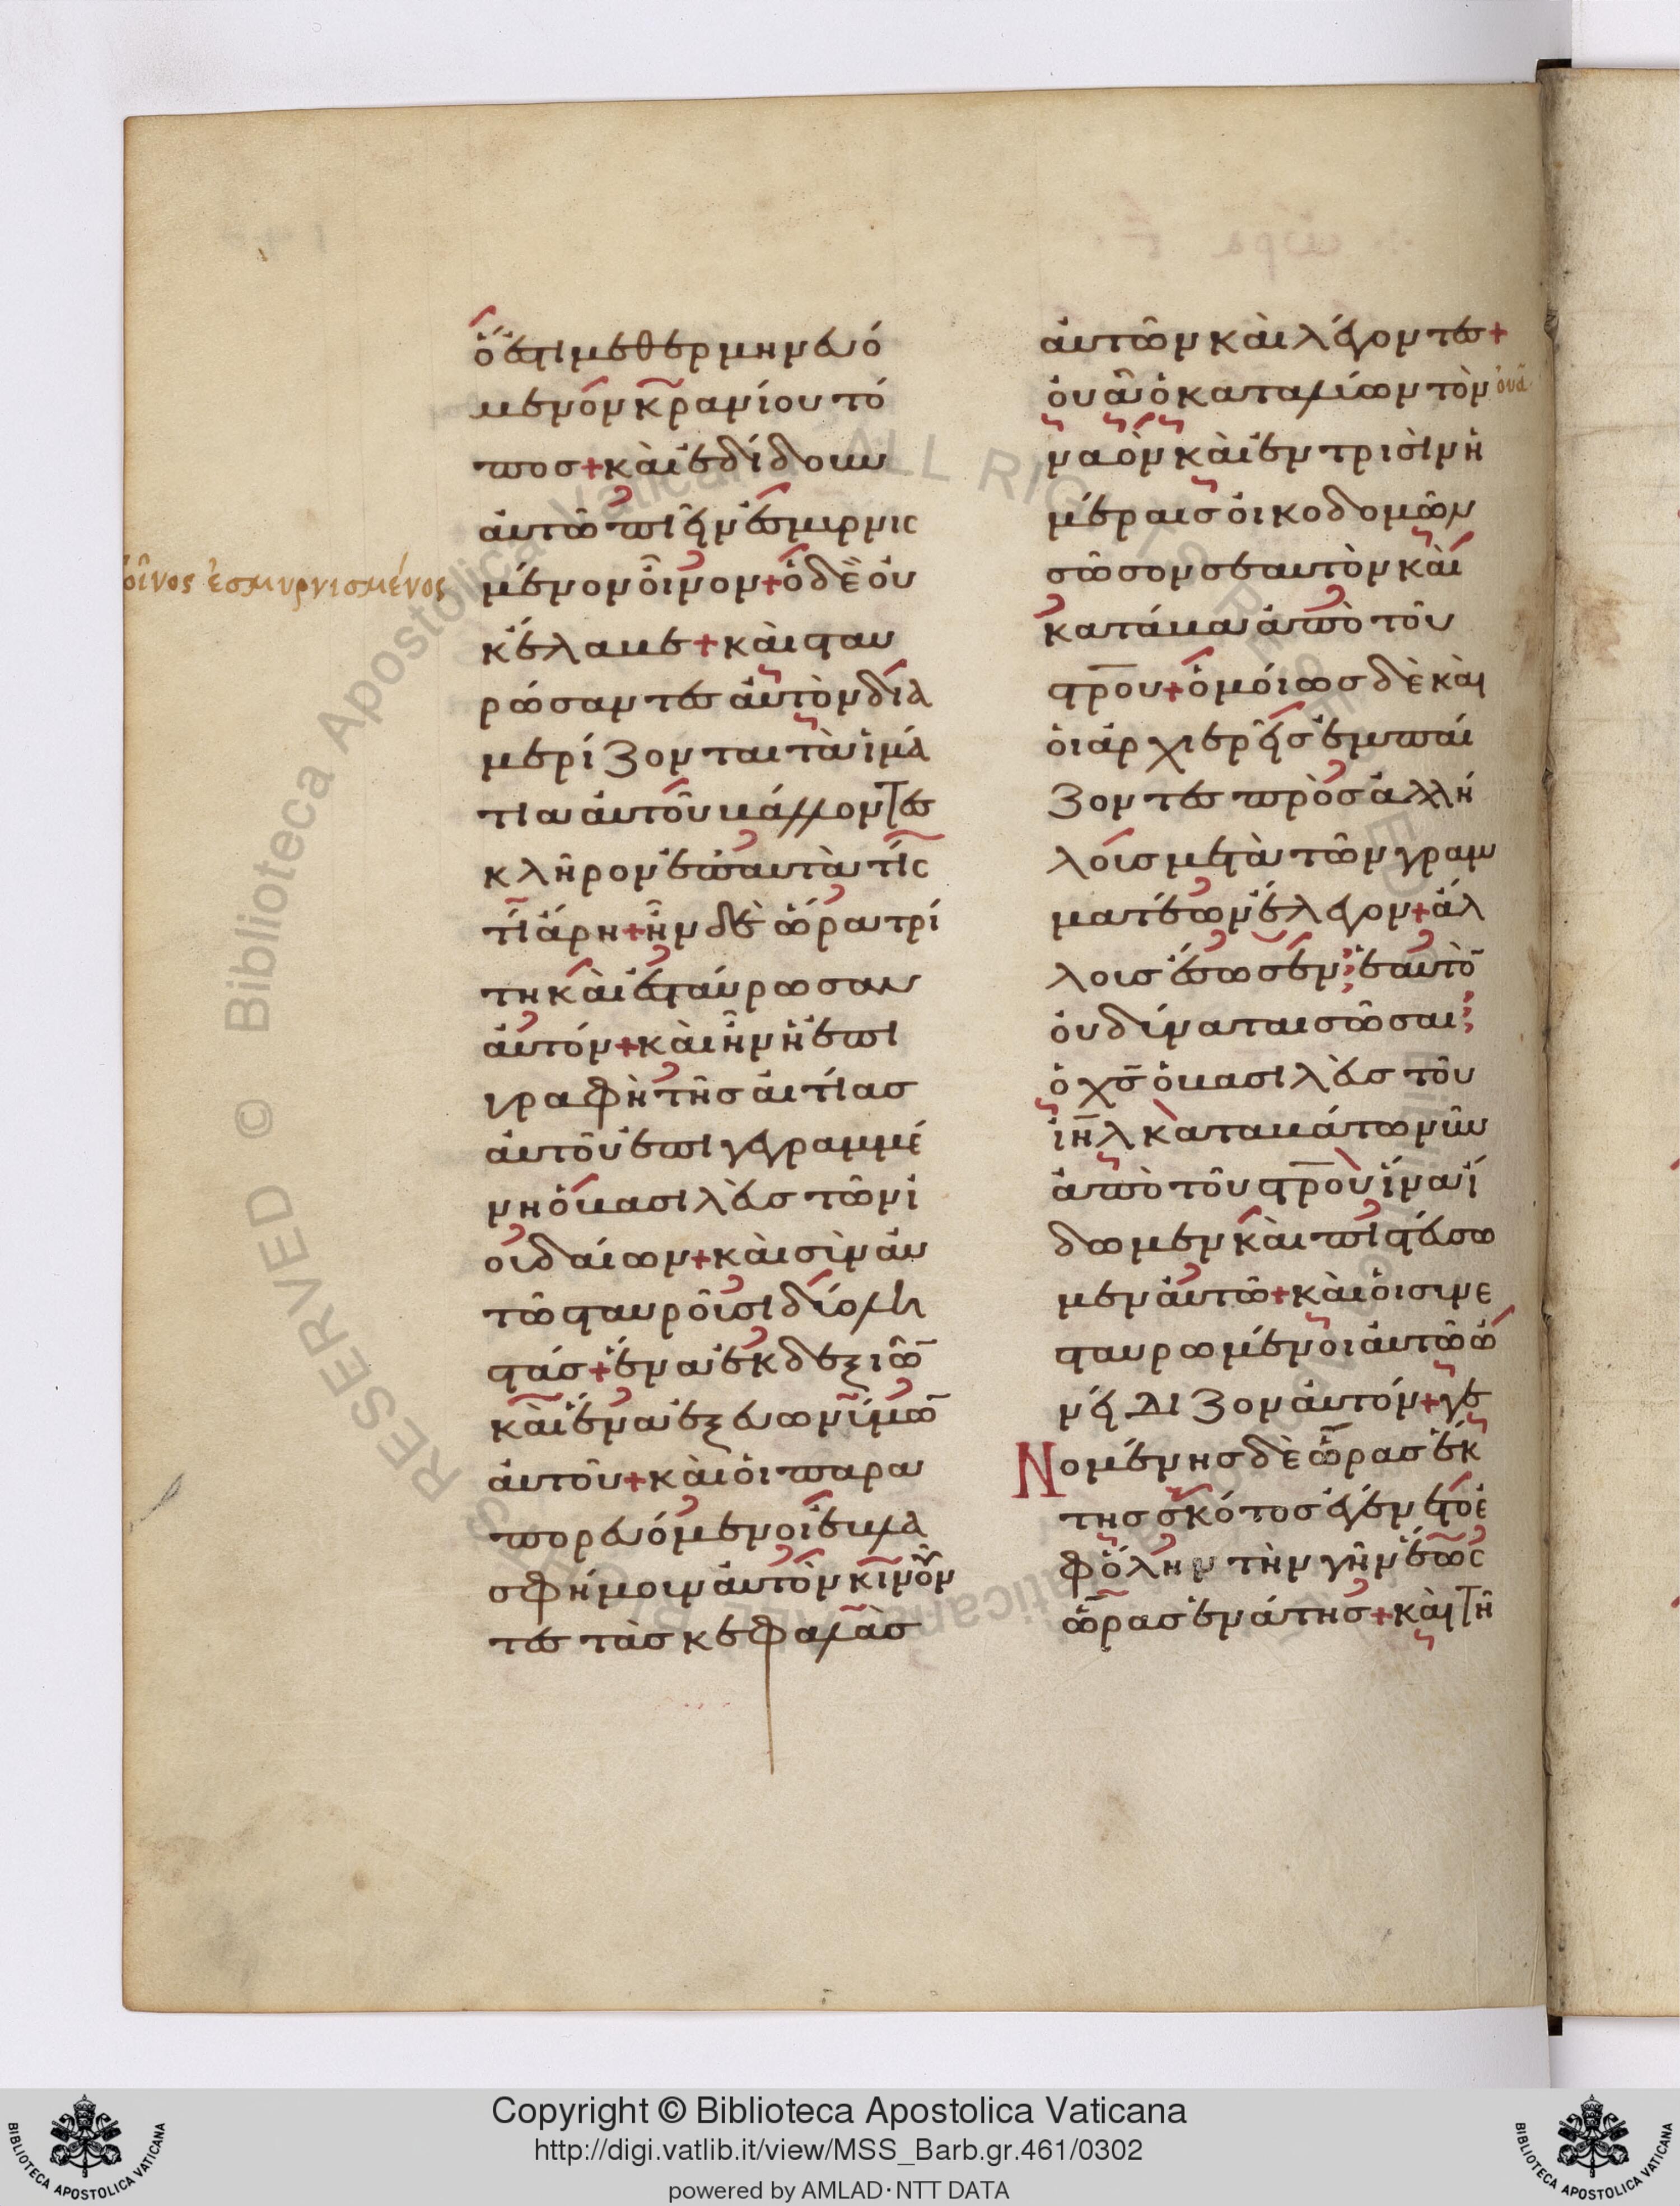 ὅ ἐστι μεθερμηνευό
μενον κρανίου τό
ποσ + καὶ ἐδίδουν
αὐτῶ πιεῖν ἐσμιρνις
οἶνος ἐσμυρνισμένος
μένον οἶνον + ὁ δὲ οὐ
κ ἔλαβε + καὶ σταυ
ρώσαντες αὐτὸν δια
μερίζονται τὰ ἱμά
τια αὐτοῦ βάλλοντες
κλῆρον ἐπ' αὐτὰ τίς
τί ἄρη + ἦν δὲ ὥρα τρί
τη καὶ ἐσταύρωσαν
αὐτόν + καὶ ἦν ἡ ἐπι
γραφὴ τῆσ αἰτίασ
αὐτοῦ ἐπιγεγραμμέ
νη ὁ βασιλεὺσ τῶν ἰ
ουδαίων + καὶ σὺν αὐ
τῶ σταυροῦσι δύο λη
στάσ + ἕνα ἐκ δεξιῶ̅
καὶ ἕνα ἐξ εὐωνύμω̅
αὐτοῦ + καὶ οἱ παρα
πορευόμενοι ἐβλα
σφήμουν αὐτὸν κινοῦν
τες τὰσ κεφαλὰσ
αὐτῶν καὶ λέγοντες +
οὐὰ ὁ καταλύων τὸν
οὐά
ναὸν καὶ ἐν τρισὶν ἡ
μέραισ οἰκοδομῶν
σῶσον σεαυτὸν καὶ
κατάβα ἀπὸ τοῦ
στ̅ρου + ὁμοίωσ δὲ καὶ
οἱ ἀρχιερεῖσ ἐμπαί
ζοντες πρὸσ ἀλλή
λουσ μετὰ τῶν γραμ
ματέων ἔλεγον + ἄλ
λουσ ἔσωσεν ἑαυτὸ̅
οὐ δύναται σῶσαι
ὁ χ̅σ ὁ βασιλεὺσ τοῦ
ἰη̅λ καταβάτω νῦν
ἀπὸ τοῦ στ̅ρου ἵνα ἴ
δωμεν καὶ πιστεύσω
μεν αὐτῶ + καὶ οἱ συνε
σταυρωμένοι αὐτῶ ὠ
νείδιζον αὐτόν + γε
Νομένησ δὲ ὥρασ ἕκ
τησ σκότοσ ἐγένετο ἐ
φ' ὅλην τὴν γῆν ἕως
ὥρασ ἐνάτησ + καὶ τῆ
Copyright © Biblioteca Apostolica Vaticana
http://digi.vatlib.it/view/MSS_Barb.gr.461/0302
powered by AMLAD·NTT DATA
BIBLIOTECA APOSTOLICA VATICANA
BIBLIOTECA APOSTOLICA VATICANA